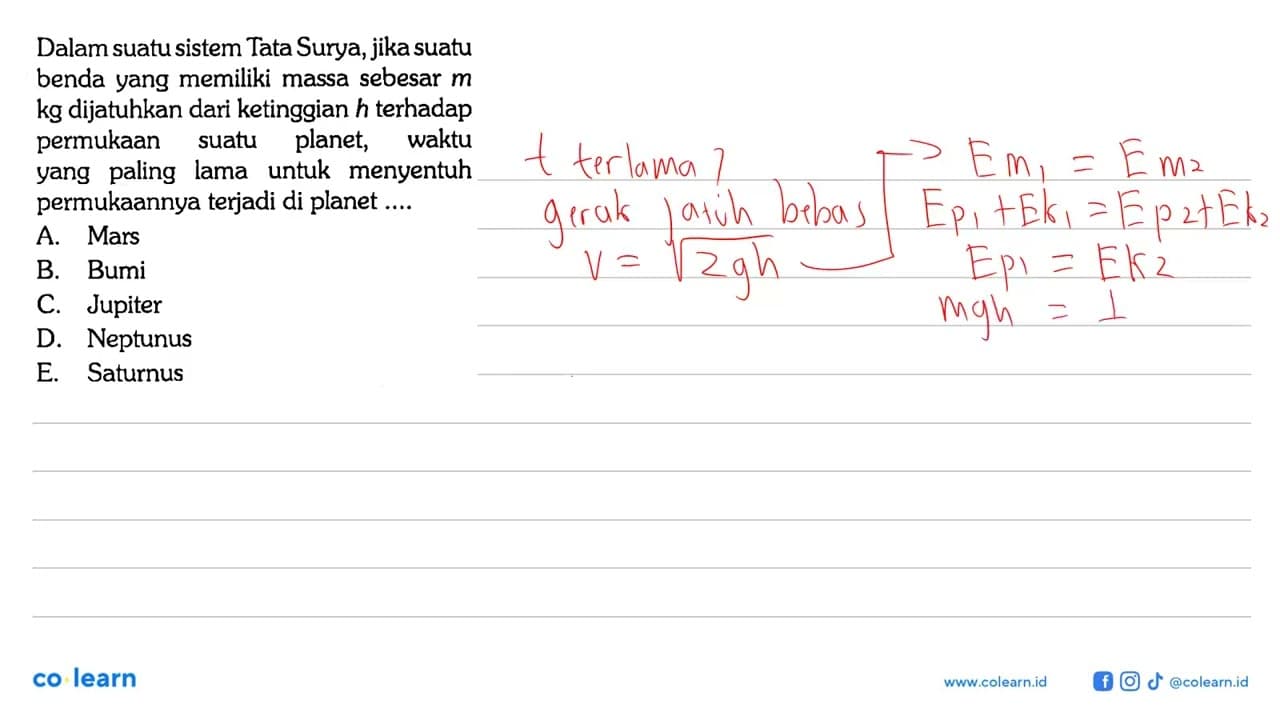 Dalam suatu sistem Tata Surya, jika suatu
benda yang memiliki massa sebesar m
kg dijatuhkan dari ketinggian h terhadap
permukaan suatu planet, waktu
yang paling lama untuk menyentuh
permukaannya terjadi di planet ....
A. Mars
B. Bumi
C. Jupiter
D. Neptunus
E. Saturnus
t terlama?
gerak jatuh bebas
v = √2gh
→ Em1 = Em2
Ep1 + Ek1 = Ep2 + Ek2
Ep1 = Ek2
mgh = 1
co learn
www.colearn.id
@colearn.id